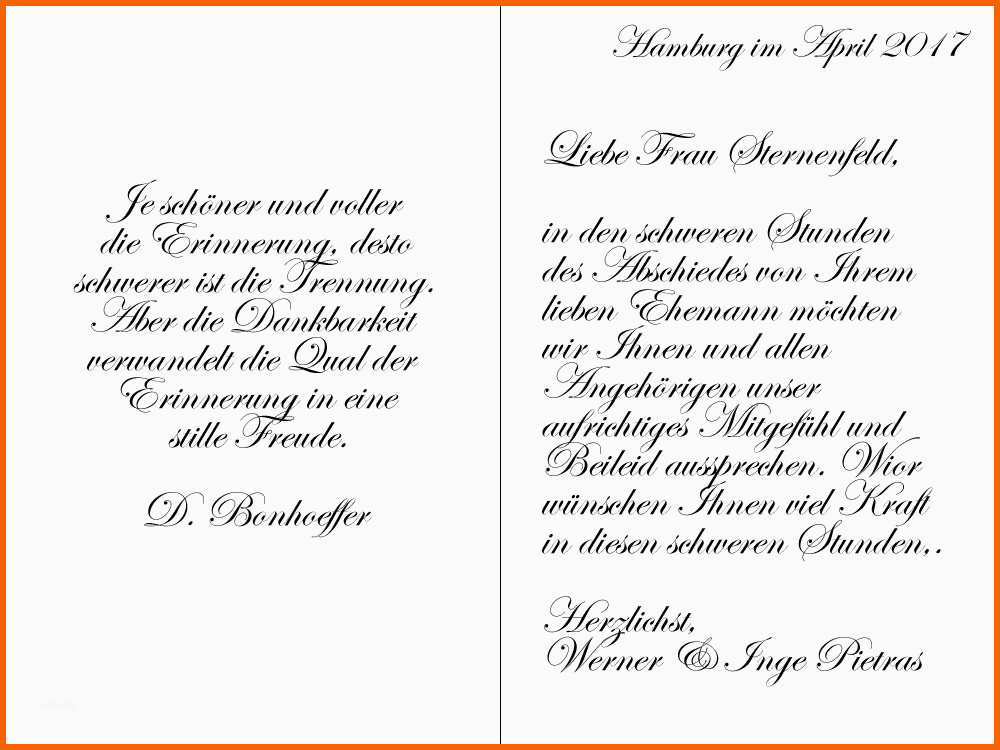 Je schöner und voller
die Erinnerung, desto
schwerer ist die Trennung.
Aber die Dankbarkeit
verwandelt die Qual der
Erinnerung in eine
stille Freude.
D. Bonhoeffer
Hamburg im April 2017
Liebe Frau Sternenfeld,
in den schweren Stunden
des Abschiedes von Ihrem
lieben Ehemann möchten
wir Ihnen und allen
Angehörigen unser
aufrichtiges Mitgefühl und
Beileid aussprechen. Wior
wünschen Ihnen viel Kraft
in diesen schweren Stunden,.
Herzlichst,
Werner & Inge Pietras